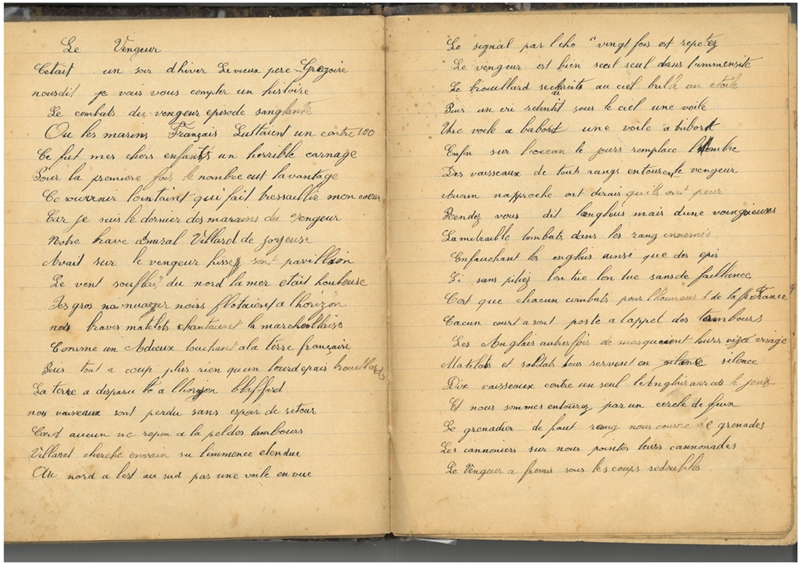 Le Vengeur
Cetait un soir d'hiver Le vieux pere Gregoire
nous dit je vais vous compter un histoire
Le combats du vengeur episode sanglante
Ou les marins Français Luttaient un contre 100
Ce fut mes chers enfants un horrible carnage
Pour la premiere fois le nombre eut lavantage
Ce souvenir lointaint qui fait tressaillir mon coeur
Car je suis le dernier des marains du vengeur
Notre brave amiral Villaret de Joyeuse
Avait sur le vengeur hisse son pavillion
Le vent souflait du nord la mer etait houleuse
Des gros nuages noirs flotaient a lhorizon
nos braves matelots chantaient la marcheillaise
Comme un Adieux touchant a la terre française
Puis tout a coup plus rien qu'un lourd epais brouillards
La terre a disparu a lhorizon
nos vaisseaux sont perdu sans espoir de retour
Card aucun ne repon a la pel des tambours
Villaret cherche envain su limmence etendue
Au nord a lest au sud pas une voile en vue
Le signal par lecho vingt fois est repetez
Le vengeur est bien seul seul dans limmensite
Le brouillard au ciel un etoile
Puis un cri retentit sous le ciel une voile
Une voile a babort une voile a tribort
Enfin sur locean le jours remplace lombre
Des vaisseaux de tout rangs entourent le vengeur
Aucun napproche ont dirait quils ont peur
Rendez vous dit langlais mais dune voix
La mitraille tombats dans les rang ennemis
Enfauchant les anglais ainsi que des epis
Et sans pitiez lon tue lon tue sans defaillance
C'est que chacun combats pour lhonneur de la France
Cacun court a sont poste a lappel des tambours
Les Anglais autrefois de masquaient leurs visage
Matelots et soldats tous servent en silence
Dix vaisseaux contre un seul
Et nous sommes entourez par un cercle de feux
Le grenadier de haut rang nous couvre de grenades
Les cannoniers sur nous pointes leurs cannonades
Le Vengeur a fremis sous les coups redoubles